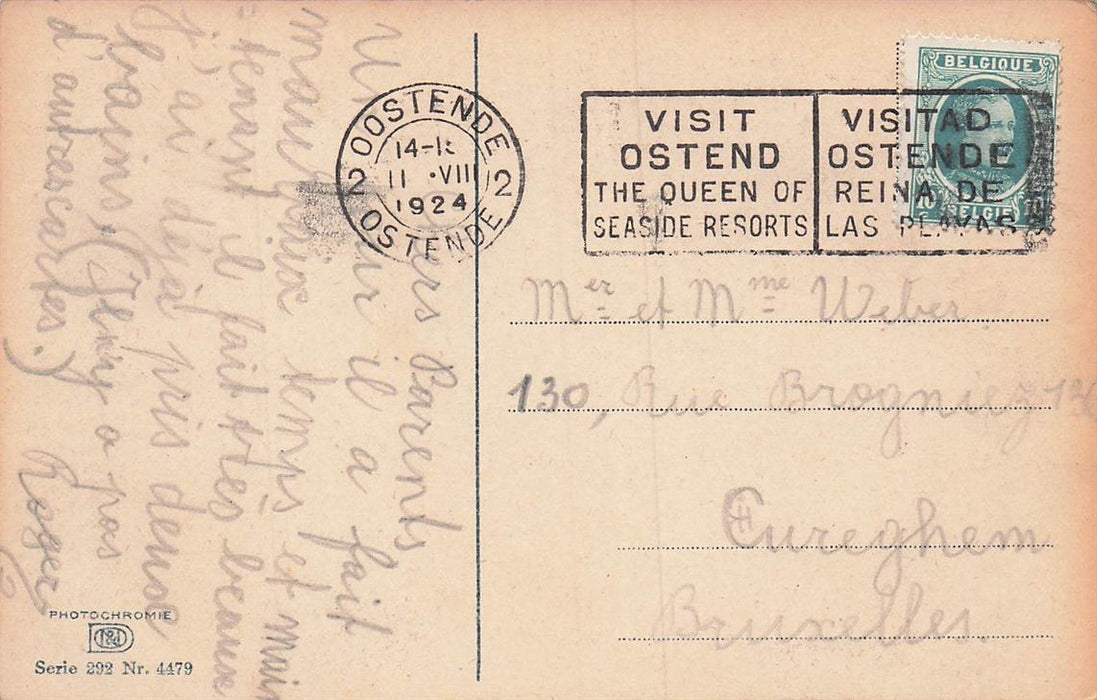 Chers Parents
Hier il a fait
mauvais temps et main
tenant il fait très beau
J'ai déjà pris deux
bains, (Il n'y a pas
d'autres cartes.)
Roger
PHOTOCHROMIE
Serie 292 Nr. 4479
OOSTENDE
2 2
11 .VIII
1924
OSTENDE
VISIT
OSTEND
THE QUEEN OF
SEASIDE RESORTS
VISITAD
OSTENDE
REINA DE
LAS PLAYAS
BELGIQUE
BELGIË
Mer et Mme Weber
130, Rue Brogniez 130
Cureghem
Bruxelles